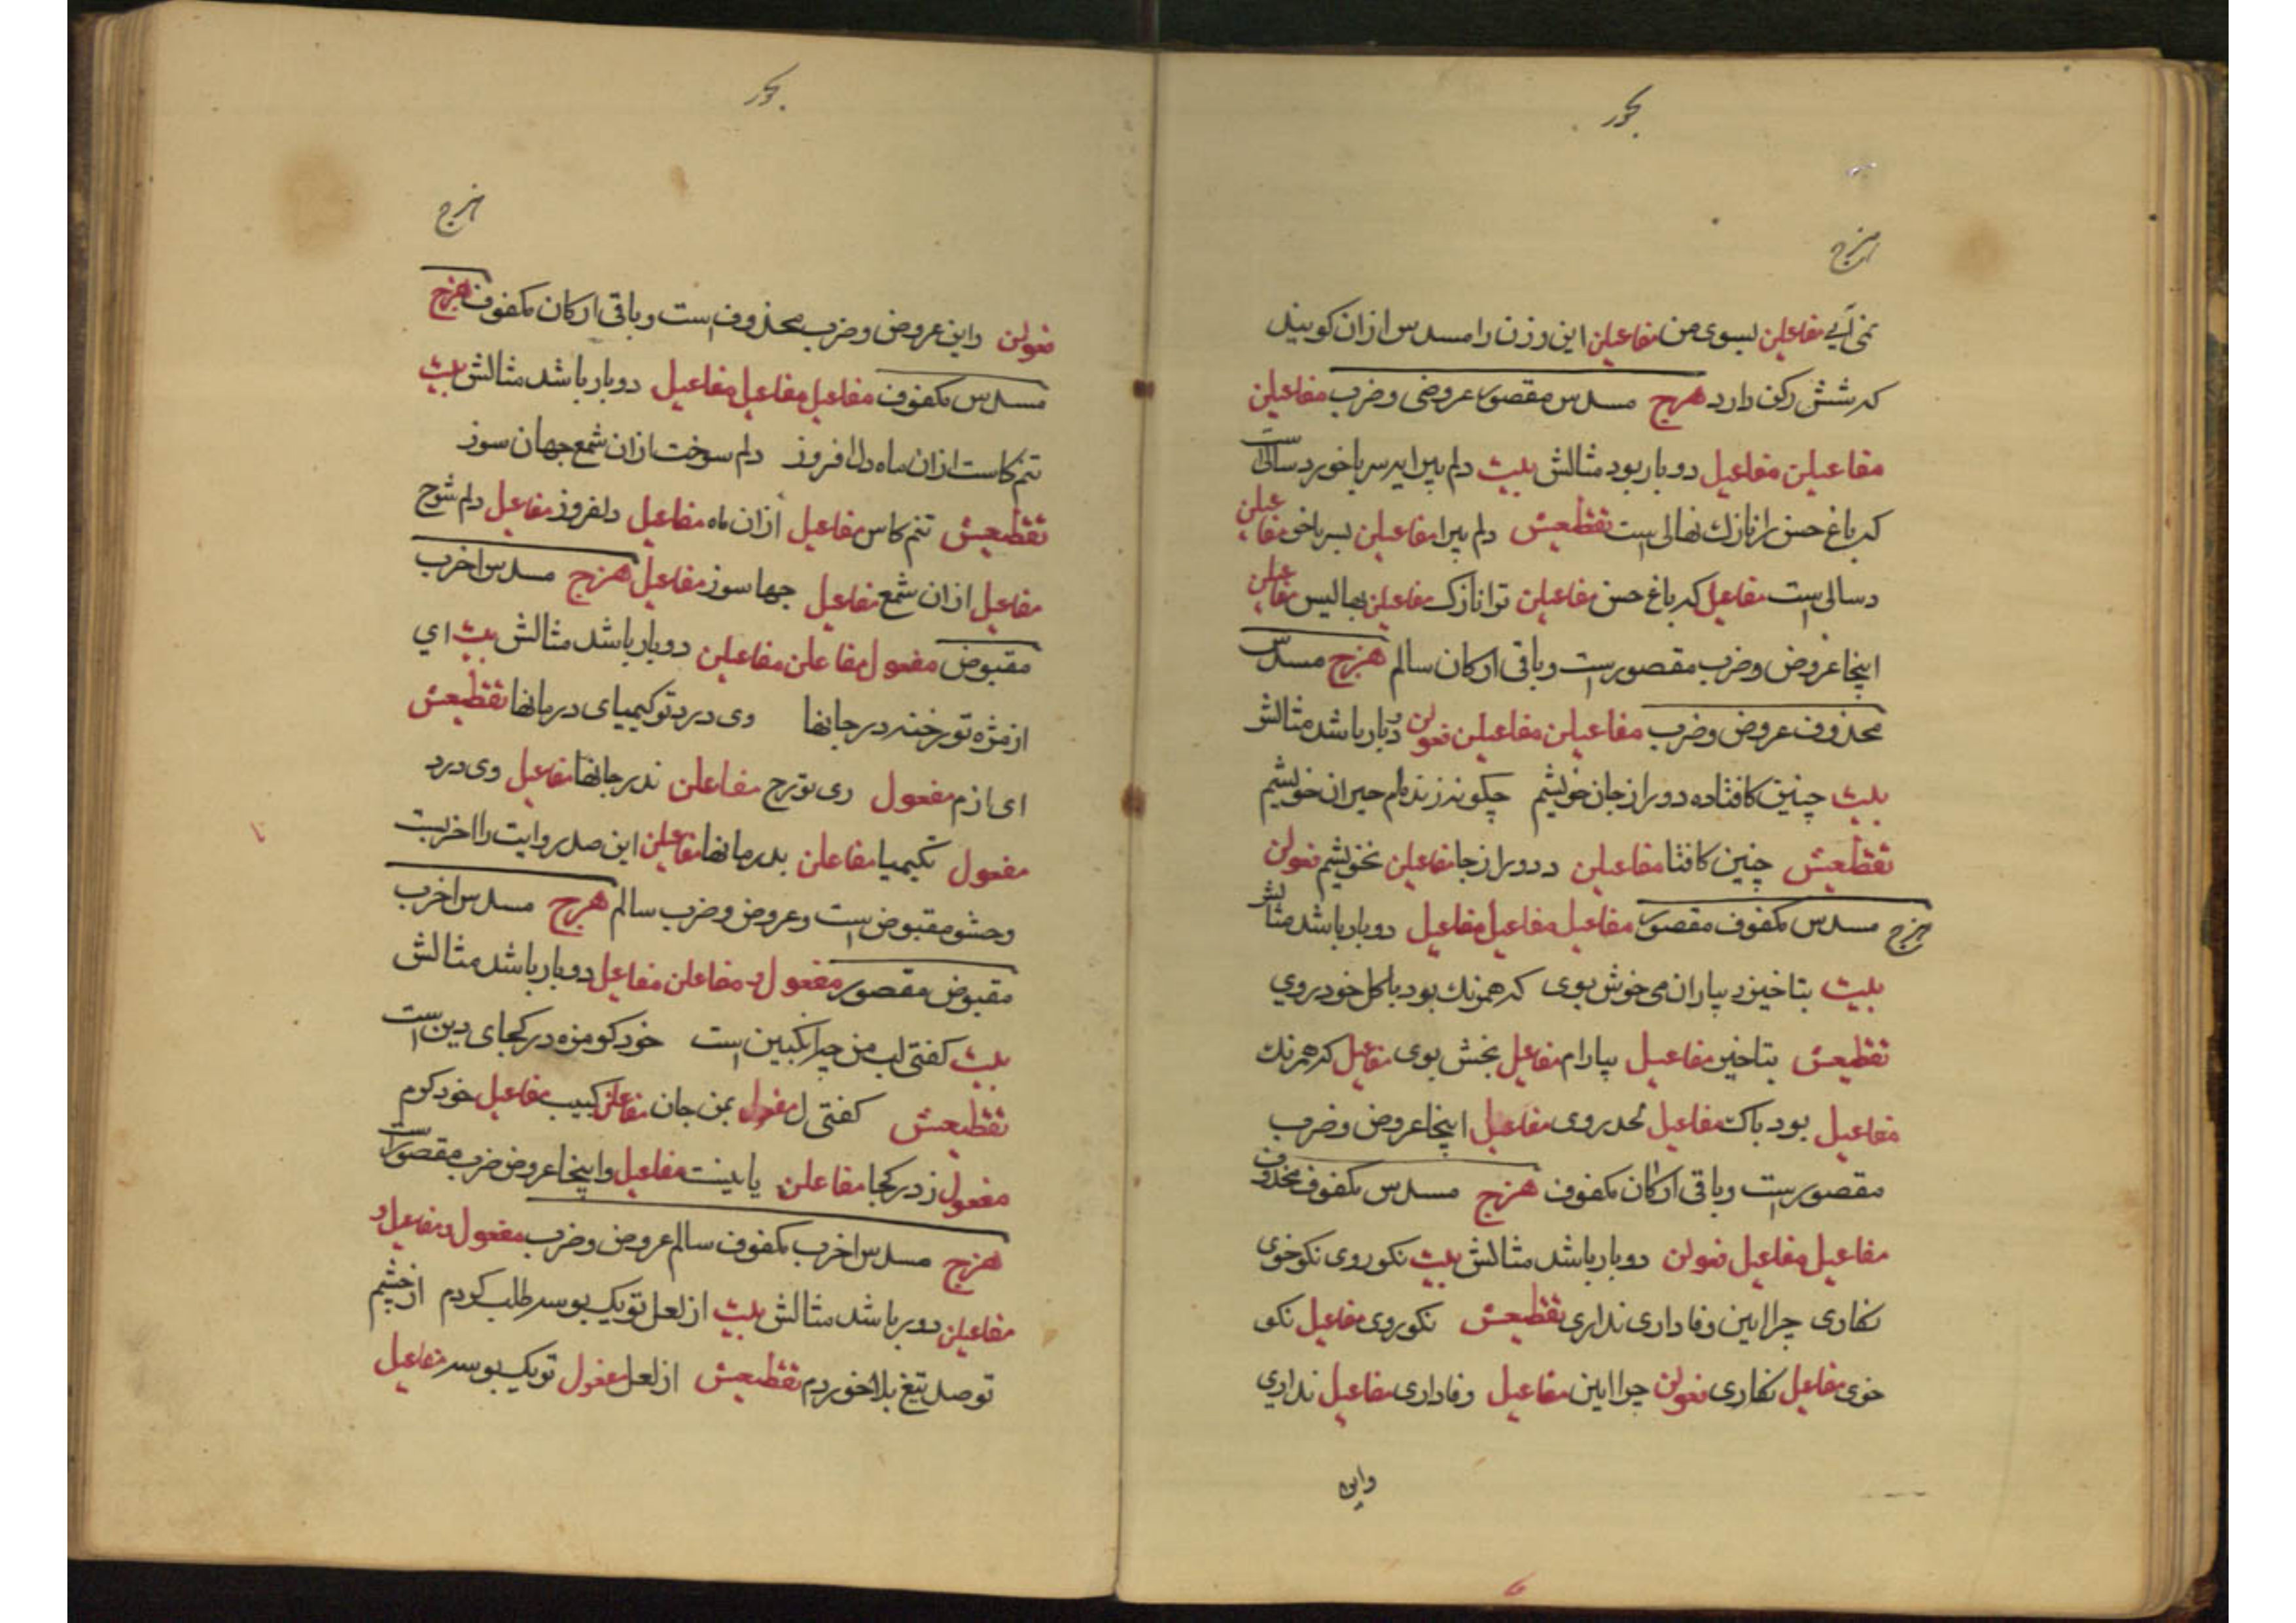 بحور
هزج
نمی آیی مفاعلین بسوی من مفاعیلن این وزن را مسدس ازان کویند
که شش رکن دارد هزج مسدس مقصور عروضی و ضرب مفاعیلن
مفاعیلن مفاعیل دو بار بود مثالش بیت دلم پیرایه سر باخورد سالی است
که باغ حسن را نازك نهالی است تقطیعش دلم پیرا مفاعیلن بسر باخر مفاعیلن
دسالی است مفاعیل که باغ حسن مفاعیلن ترا نازک مفاعیلن نهالیس مفاعیلن
اینجا عروض و ضرب مقصور است و باقی ارکان سالم هزج مسدس
محذوف عروض و ضرب مفاعیلن مفاعیلن فعولن دو بار باشد مثالش
بیت چنین کافتاده دور از جان خویشم چکونه زنده ام حیران خویشم
تقطیعش چنین کافتا مفاعیلن ددور از جا مفاعیلن نخویشم فعولن
هزج مسدس مکفوف مقصور مفاعیل مفاعیل مفاعیل دو بار باشد مثالش
بیت بتا خیز و بیاران می خوش بوی که همرنك بود با کل خود روی
تقطیعش بتا خیز مفاعیل بیارام مفاعیل بخش بوی مفاعیل که همرنك
مفاعیل بود باک مفاعیل لخدروی مفاعیل اینجا عروض و ضرب
مقصور است و باقی ارکان مکفوف هزج مسدس مکفوف محذوف
مفاعیل مفاعیل فعولن دو بار باشد مثالش بیت نکوروی نکوخوی
نکاری چرا این وفاداری نداری تقطیعش نکوروی مفاعیل نکو
خوی مفاعیل نکاری فعولن چرا این مفاعیل وفاداری مفاعیل نداری
واین
بحور
هزج
فعولن و این عروض و ضرب محذوف است و باقی ارکان مکفوف هزج
مسدس مکفوف مفاعیل مفاعیل مفاعیل دو بار باشد مثالش بیت
تنم کاست ازان ماه دل افروز دلم سوخت ازان شمع جهان سوز
تقطیعش تنم کاس مفاعیل ازان ماه مفاعیل دلفروز مفاعیل دلم سوخ
مفاعیل ازان شمع مفاعیل جها سوز مفاعیل هزج مسدس اخرب
مقبوض مفعول مفاعلن مفاعیلن دو بار باشد مثالش بیت ای
از مژه تو رخنه در جانها وی درد تو کیمیای درمانها تقطیعش
ای ازم مفعول ژی تو رخ مفاعلن نه در جانها مفاعیل وی درد
مفعول تکیمیا مفاعلن بدرمانها مفاعیلن این صدر وایت را اخربست
وحشو مقبوض است وعروض و ضرب سالم هزج مسدس اخرب
مقبوض مقصور مفعول مفاعلن مفاعیل دو بار باشد مثالش
بیت کفتی لب من چرا نکبین است خود کو مزه در کجای دین است
تقطیعش کفتی ل مفعول بمن جان مفاعلن کبیب مفاعیل خود کوم
مفعول زدر کجا مفاعلن یا بینست مفاعیل و اینجا عروض ضرب مقصور است
هزج مسدس اخرب مکفوف سالم عروض و ضرب مفعول و مفاعیل و
مفاعیلن دو بر باشد مثالش بیت از لعل تو یک بوسه طلب کردم از خشم
تو صد تیغ بلا خوردم تقطیعش از لعل مفعول تو یک بوسه مفاعیل